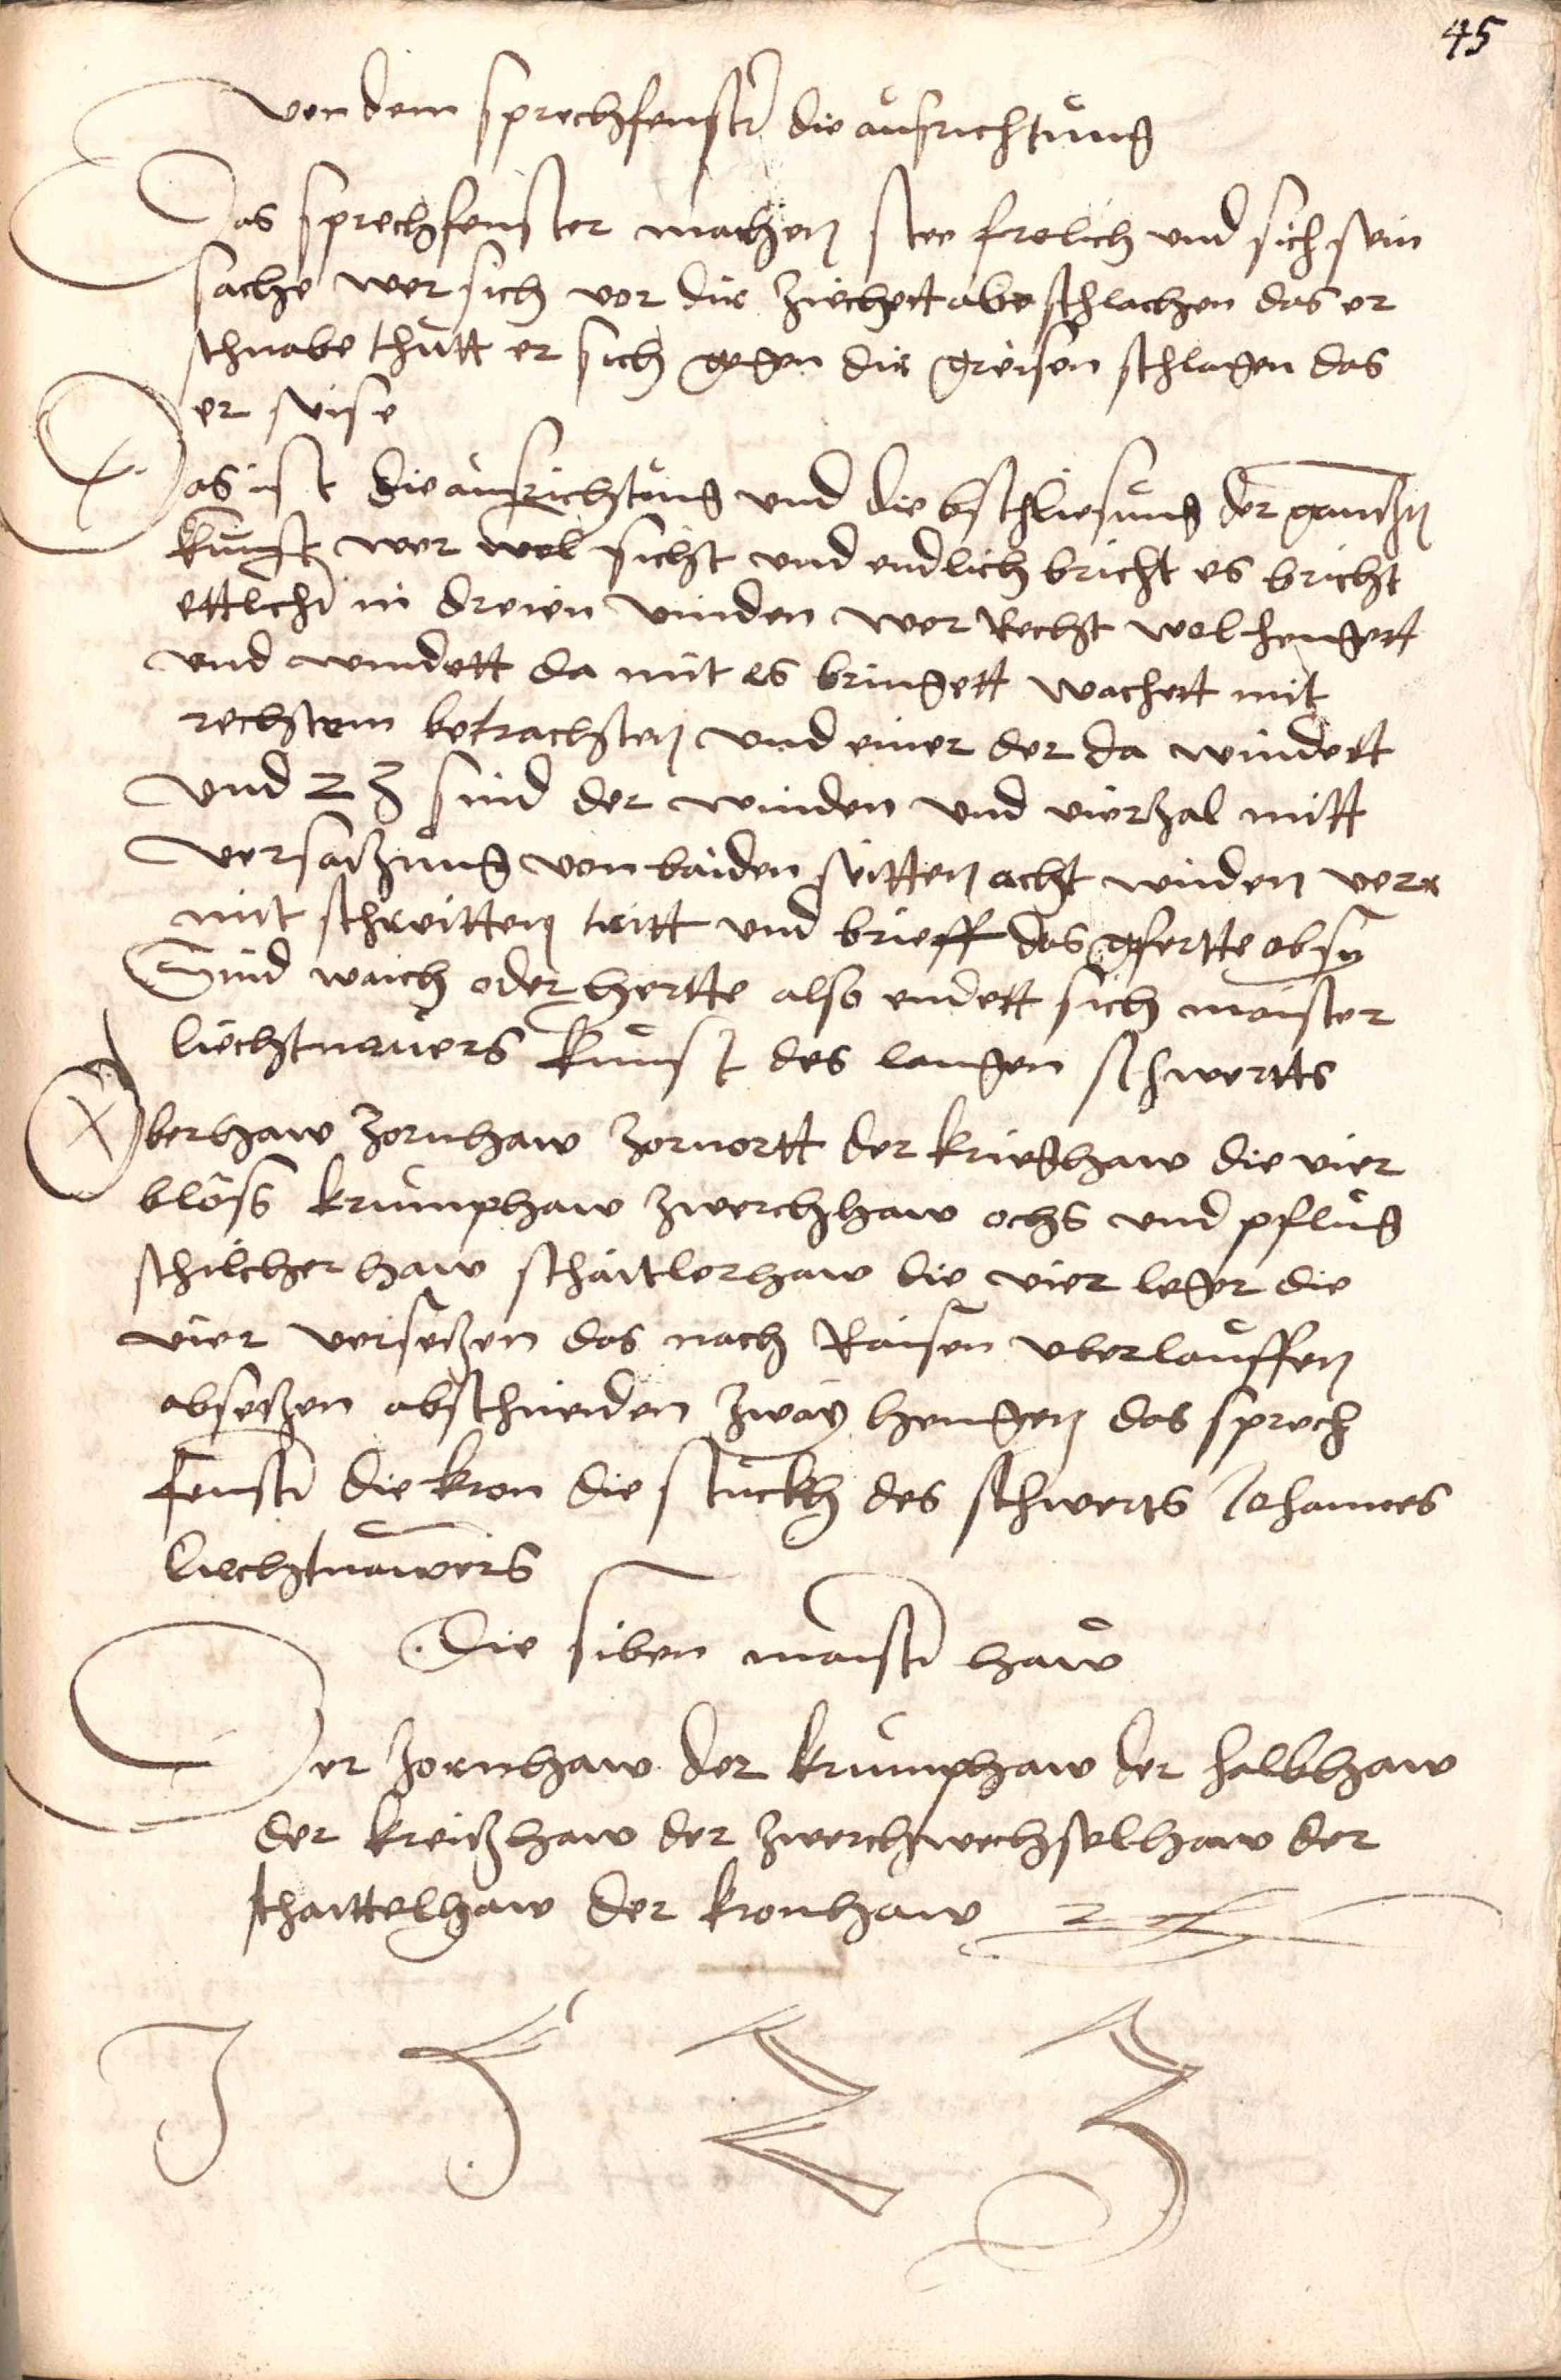 45
von dem sprechfenstr die ausrichtung
Das sprechfenster machen stee frelich und sich sein
sache wer sich vor dir ziechett abe schlachen das er
schnabe thutt er sich gegen dir greisen schlagen das
er seise
Das ist die ausrichtung und die bschliesung der gantzen
kunst wer wol sicht und endlich bricht es bricht
ettlchr in dreien vinden wer Recht wol hengett
und windett da mit es bringett wachett mit
rechtem betrachten und einer der da windett
und 23 sind der winden und vierzal mitt
versatzung von baiden seitten acht winden verr
mit schreitten tritt und brieff das gfertte ob sy
Sind waich oder hertte also endett sich maister
liechtnauers kunst des langen schwertts
Oberhaw zornhaw zornortt der krieghaw die vier
blöss krumphaw zwerchhaw ochs und pflug
schilcher haw schaitlerhaw die vier leger die
vier versetzen das nach Raisen uberlauffen
absetzen abschneiden zway hengen das sprech
fenstr die kron die stuckh des schwerts Johannes
liechtnawers
Die siben maistr haw
Der zornhaw der krumphaw der halbhaw
der kreitzhaw der zwerchwechselhaw der
schaittelhaw der kronhaw
1 5 2 3